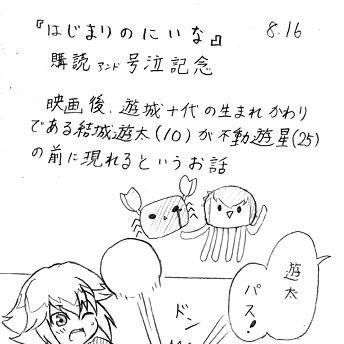 『はじまりのにいな』
8.16
購読アンド号泣記念
映画後、遊城十代の生まれかわり
である結城遊太(10)が不動遊星(25)
の前に現れるというお話
遊太
パス!
ドン